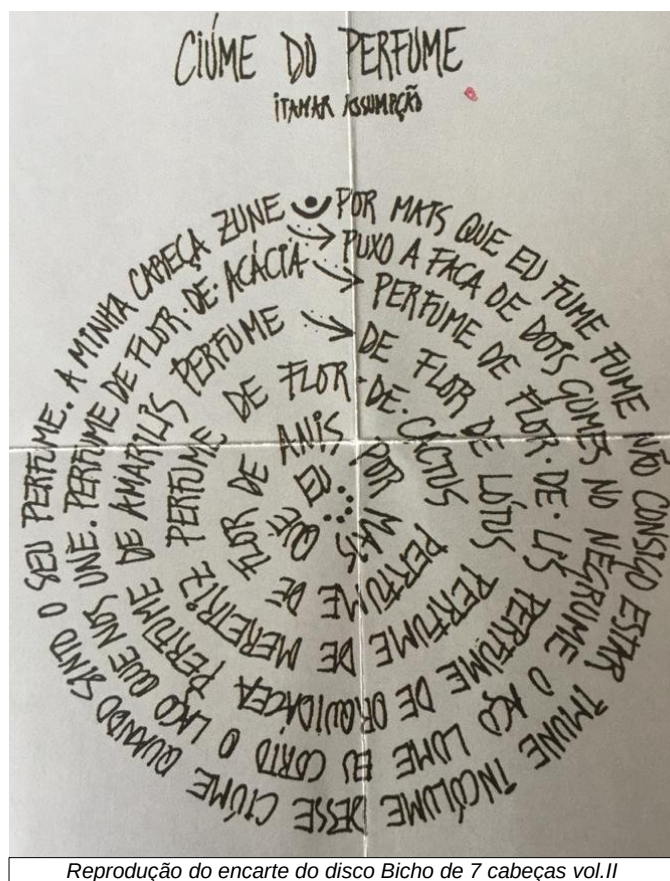 CIÚME DO PERFUME
ITAMAR ASSUMPÇÃO
POR MAIS QUE EU FUME FUME NÃO CONSIGO ESTAR IMUNE INCÓLUME DESSE CIÚME QUANDO SINTO O SEU PERFUME. A MINHA CABEÇA ZUNE
PUXO A FACA DE DOIS GUMES NO NEGRUME O AÇO LUME EU CORTO O LAÇO QUE NOS UNE. PERFUME DE FLOR·DE·ACÁCIA
PERFUME DE FLOR·DE·LÍS PERFUME DE ORQUIDÁCEA PERFUME DE AMARILIS PERFUME
DE FLOR DE LÓTUS PERFUME DE MERETRIZ PERFUME DE FLOR
·DE·CÁCTUS PERFUME DE FLOR DE ANIS
POR MAIS QUE EU...
Reprodução do encarte do disco Bicho de 7 cabeças vol.II